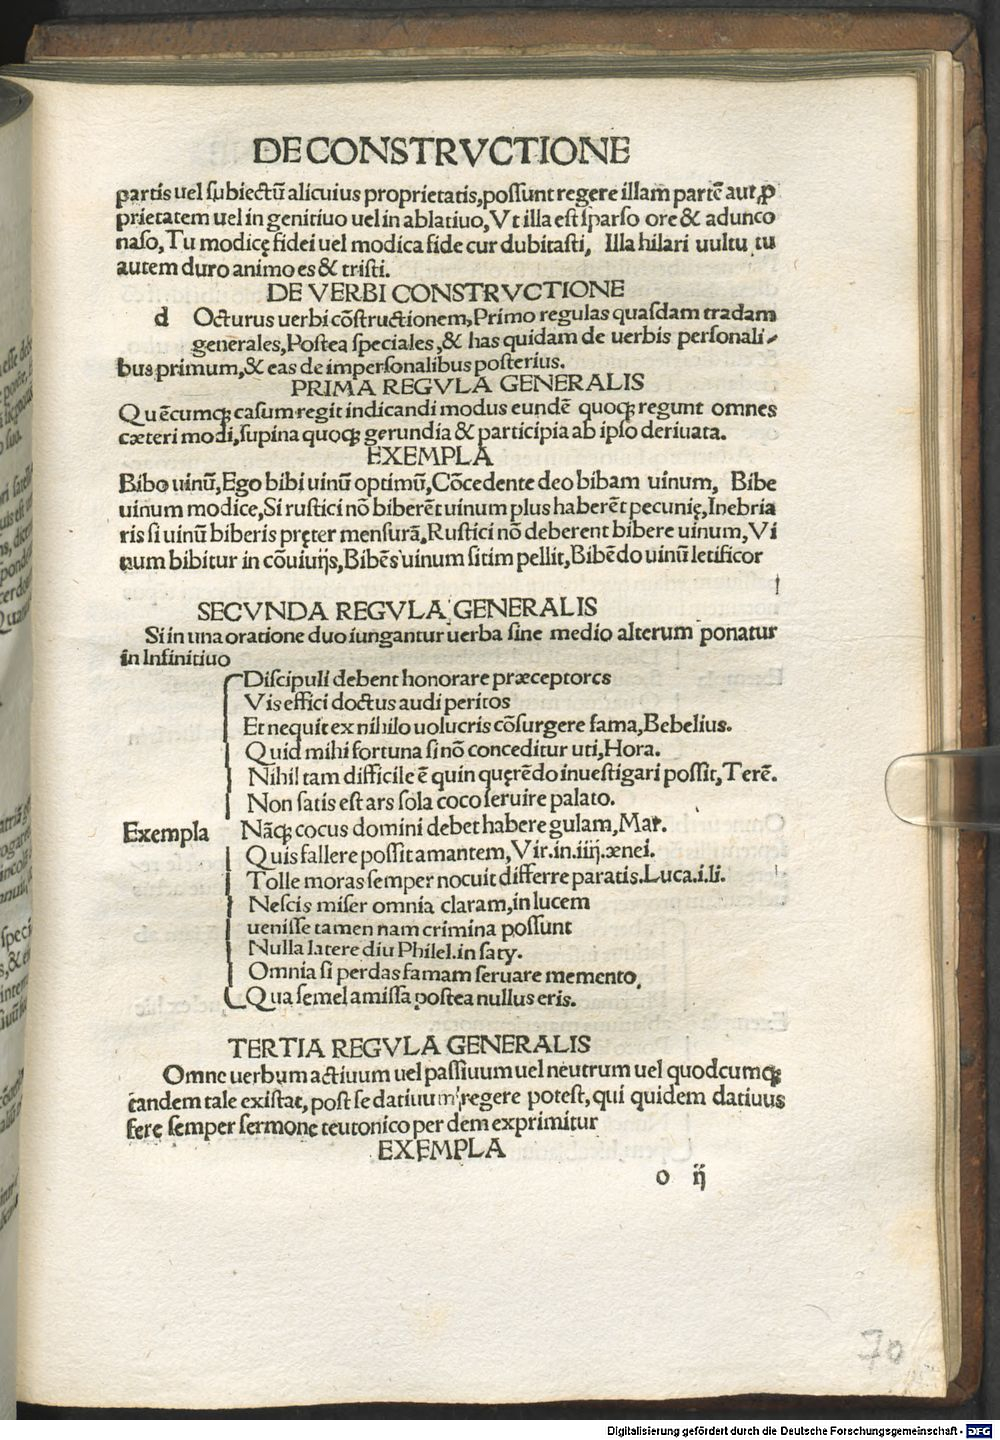 DE CONSTRVCTIONE
partis uel subiectũ alicuius proprietatis, possunt regere illam partẽ aut ꝓ
prietatem uel in genitiuo uel in ablatiuo, Vt illa est sparso ore & adunco
naso, Tu modicę fidei uel modica fide cur dubitasti, Illa hilari uultu tu
autem duro animo es & tristi.
DE VERBI CONSTRVCTIONE
d Octurus uerbi cõstructionem, Primo regulas quasdam tradam
generales, Postea speciales, & has quidam de uerbis personali-
bus primum, & eas de impersonalibus posterius.
PRIMA REGVLA GENERALIS
Quẽcumqꝫ casum regit indicandi modus eundẽ quoqꝫ regunt omnes
cæteri modi, supina quoqꝫ gerundia & participia ab ipso deriuata.
EXEMPLA
Bibo uinũ, Ego bibi uinũ optimũ, Cõcedente deo bibam uinum, Bibe
uinum modice, Si rustici nõ biberẽt uinum plus haberẽt pecunię, Inebria
ris si uinũ biberis pręter mensurã, Rustici nõ deberent bibere uinum, Vi
num bibitur in cõuiuijs, Bibẽs uinum sitim pellit, Bibẽdo uinũ letificor
SECVNDA REGVLA GENERALIS
Si in una oratione duo iungantur uerba sine medio alterum ponatur
in Infinitiuo
Discipuli debent honorare præceptores
Vis effici doctus audi peritos
Et nequit ex nihilo uolucris cõsurgere fama, Bebelius.
Quid mihi fortuna si nõ conceditur uti, Hora.
Nihil tam difficile ẽ quin quęrẽdo inuestigari possit, Terẽ.
Non satis est ars sola coco seruire palato.
Exempla Nãqꝫ cocus domini debet habere gulam, Mar.
Quis fallere possit amantem, Vir. in. iiij. ænei.
Tolle moras semper nocuit differre paratis. Luca. i. li.
Nescis miser omnia claram, in lucem
uenisse tamen nam crimina possunt
Nulla latere diu Philel. in saty.
Omnia si perdas famam seruare memento,
Qua semel amissa postea nullus eris.
TERTIA REGVLA GENERALIS
Omne uerbum actiuum uel passiuum uel neutrum uel quodcumqꝫ
tandem tale existat, post se datiuum regere potest, qui quidem datiuus
fere semper sermone teutonico per dem exprimitur
EXEMPLA
o ij
70
Digitalisierung gefördert durch die Deutsche Forschungsgemeinschaft - DFG